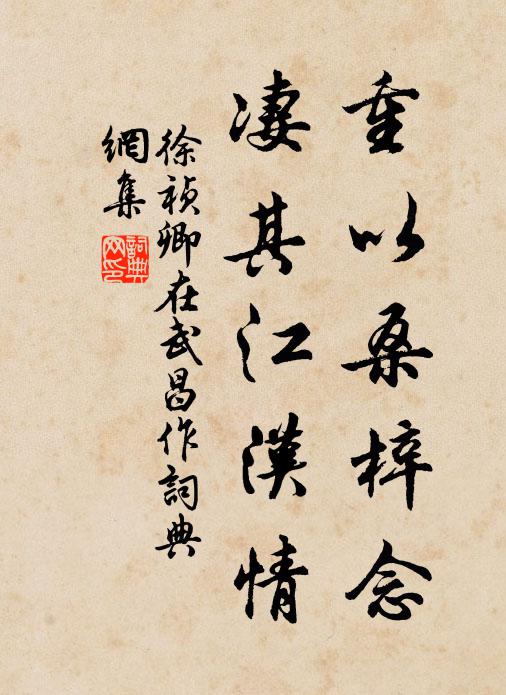 重以桑梓念
凄其江漢情
徐禎卿在武昌作詞典
網集
詞典網印